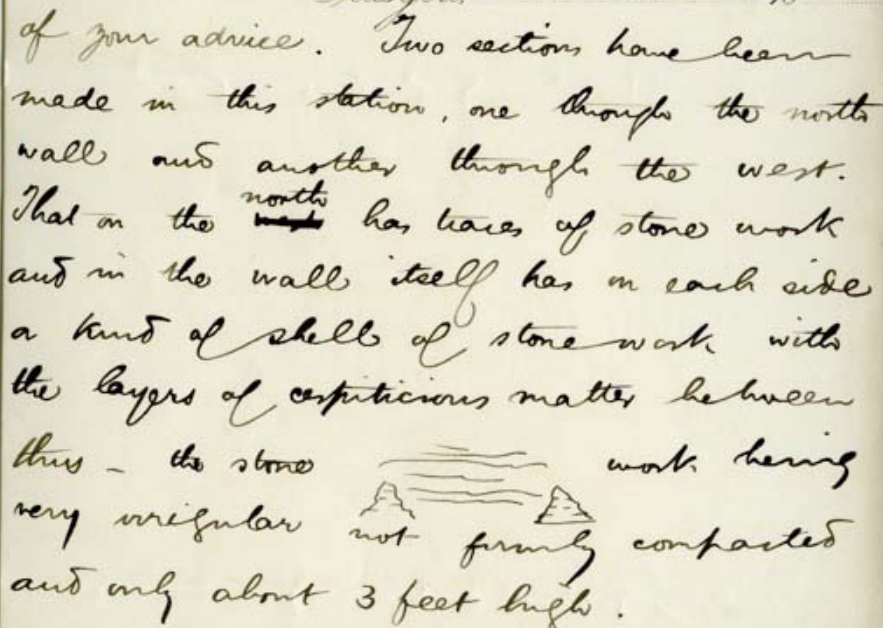 of your advice. Two sections have been
made in this station, one through the north
wall and another through the west.
north
That on the has traces of stone work
and in the wall itself has on each side
a kind of shell of stone work with
the layers of cespiticious matter between
thus – the stone work being
very irregular not firmly compacted
and only about 3 feet high.